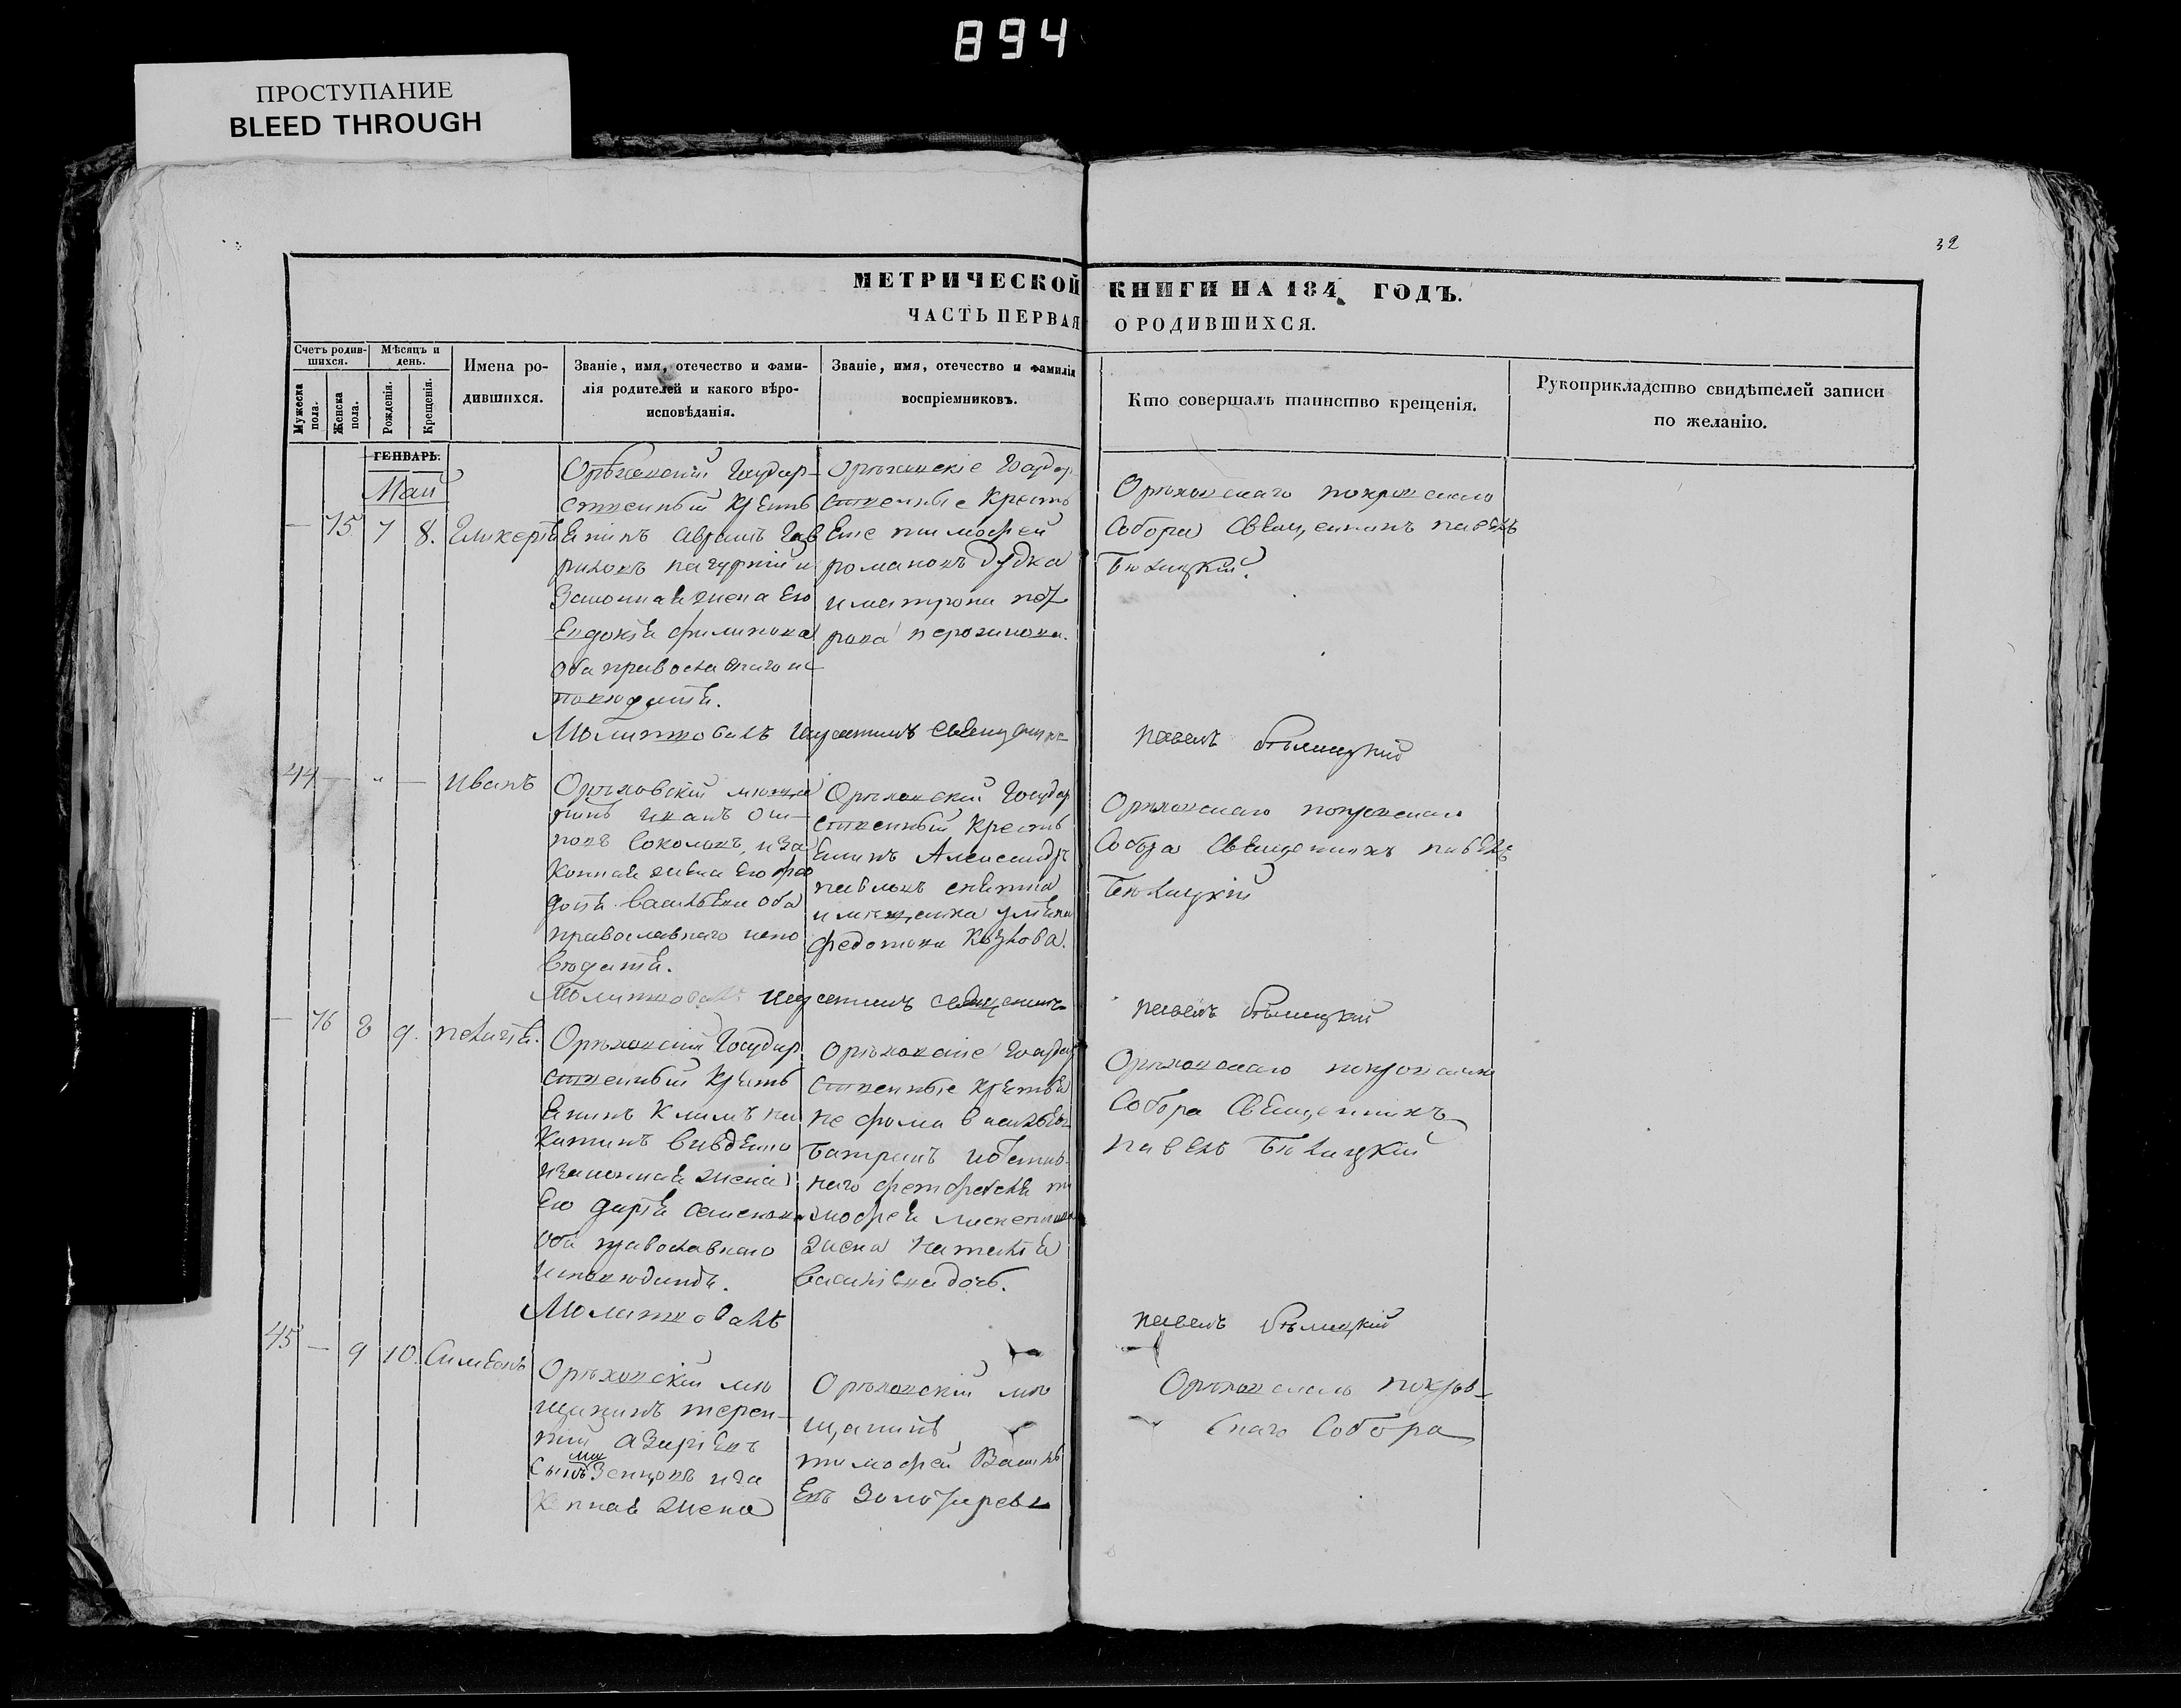 894
ПРОСТУПАНИЕ
BLEED THROUGH
32
МЕТРИЧЕСКОЙ КНИГИ НА 184 ГОДЪ.
ЧАСТЬ ПЕРВАЯ О РОДИВШИХСЯ.
Счетъ родившихся.
Мужеска пола.
Женска пола.
Мѣсяцъ и день.
Рожденія.
Крещенія.
Имена родившихся.
Званіе, имя, отечество и фамилія родителей и какого вѣроисповѣданія.
Званіе, имя, отечество и фамилія воспріемниковъ.
Кто совершалъ таинство крещенія.
Рукоприкладство свидѣтелей записи по желанію.
ГЕНВАРЬ.
Май
75 7 8. Гликерія
Орѣховскій Государ
ственный Крестья
нинъ Аврамъ Гав
риловъ
Законная жена Его
Евдокія филипова
Оба православнаго ис
повѣданія.
Орѣховскіе Государ
ственные Крестья
не тимофей
романовъ дудка
и матрона пет
рова
Орѣховскаго покровскаго
Собора Священникъ павелъ
Бѣлицкій.
Молитвовалъ и крестилъ Священникъ
павелъ бѣлицкій
44 — „ — Иванъ
Орѣховскій мѣща
нинъ Иванъ Оси
повъ Соколовъ, и за
конная жена Его фео
досія васильева Оба
православнаго испо
вѣданія.
Орѣховскій Государ
ственный Крестья
нинъ Александръ
павловъ
и мѣщанка
федотова Козлова.
Орѣховскаго покровскаго
Собора Священникъ павелъ
Бѣлицкій
Молитвовалъ и крестилъ священникъ
павелъ бѣлицкій
— 76 8 9. пелагія.
Орѣховскій Государ
ственный Крестья
нинъ Климъ ни
китинъ
и законная жена
Его дарія Семенова
Оба православнаго
исповѣданія.
Орѣховскіе Государ
ственные Крестья
не фома васильевъ
жена наталія
дочь.
Орѣховскаго покровскаго
Собора Священникъ
павелъ Бѣлицкій
Молитвовалъ
павелъ бѣлицкій
45 — 9 10. Симеонъ
Орѣховскій мѣ
щанинъ терен
тій Азаріевъ
сынъ и за
конная жена
Орѣховскій мѣ
щанинъ
тимофей Василь
евъ Золотаревъ
Орѣховскаго покров
скаго Собора